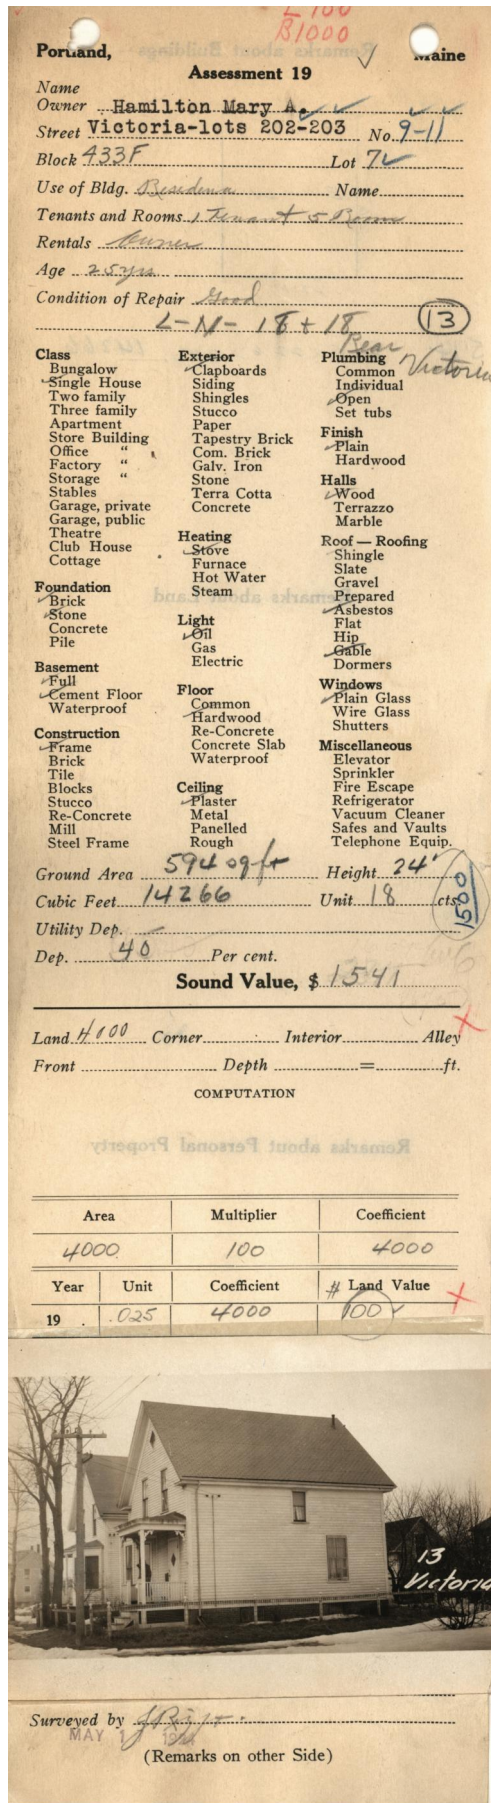 L 100
B1000
Portland, Maine
Assessment 19
Name
Owner Hamilton Mary A.
Street Victoria-lots 202-203 No. 9-11
Block 433F Lot 7
Use of Bldg. Residence Name
Tenants and Rooms 1 Tenant 5 Room
Rentals Owner
Age 25 yrs
Condition of Repair Good
L-N- 18 + 18 13
Rear Victoria
Class
Bungalow
Single House
Two family
Three family
Apartment
Store Building
Office "
Factory "
Storage "
Stables
Garage, private
Garage, public
Theatre
Club House
Cottage
Foundation
Brick
Stone
Concrete
Pile
Basement
Full
Cement Floor
Waterproof
Construction
Frame
Brick
Tile
Blocks
Stucco
Re-Concrete
Mill
Steel Frame
Exterior
Clapboards
Siding
Shingles
Stucco
Paper
Tapestry Brick
Com. Brick
Galv. Iron
Stone
Terra Cotta
Concrete
Heating
Stove
Furnace
Hot Water
Steam
Light
Oil
Gas
Electric
Floor
Common
Hardwood
Re-Concrete
Concrete Slab
Waterproof
Ceiling
Plaster
Metal
Panelled
Rough
Plumbing
Common
Individual
Open
Set tubs
Finish
Plain
Hardwood
Halls
Wood
Terrazzo
Marble
Roof — Roofing
Shingle
Slate
Gravel
Prepared
Asbestos
Flat
Hip
Gable
Dormers
Windows
Plain Glass
Wire Glass
Shutters
Miscellaneous
Elevator
Sprinkler
Fire Escape
Refrigerator
Vacuum Cleaner
Safes and Vaults
Telephone Equip.
Ground Area 594 sq ft Height 24'
Cubic Feet 14266 Unit 18 cts.
1500
Utility Dep.
Dep. 40 Per cent.
Sound Value, $ 1541
Land 4000 Corner Interior Alley
Front Depth = ft.
COMPUTATION
Area Multiplier Coefficient
4000 100 4000
Year Unit Coefficient # Land Value
19 .025 4000 100
13
Victoria
Surveyed by
MAY 1
(Remarks on other Side)